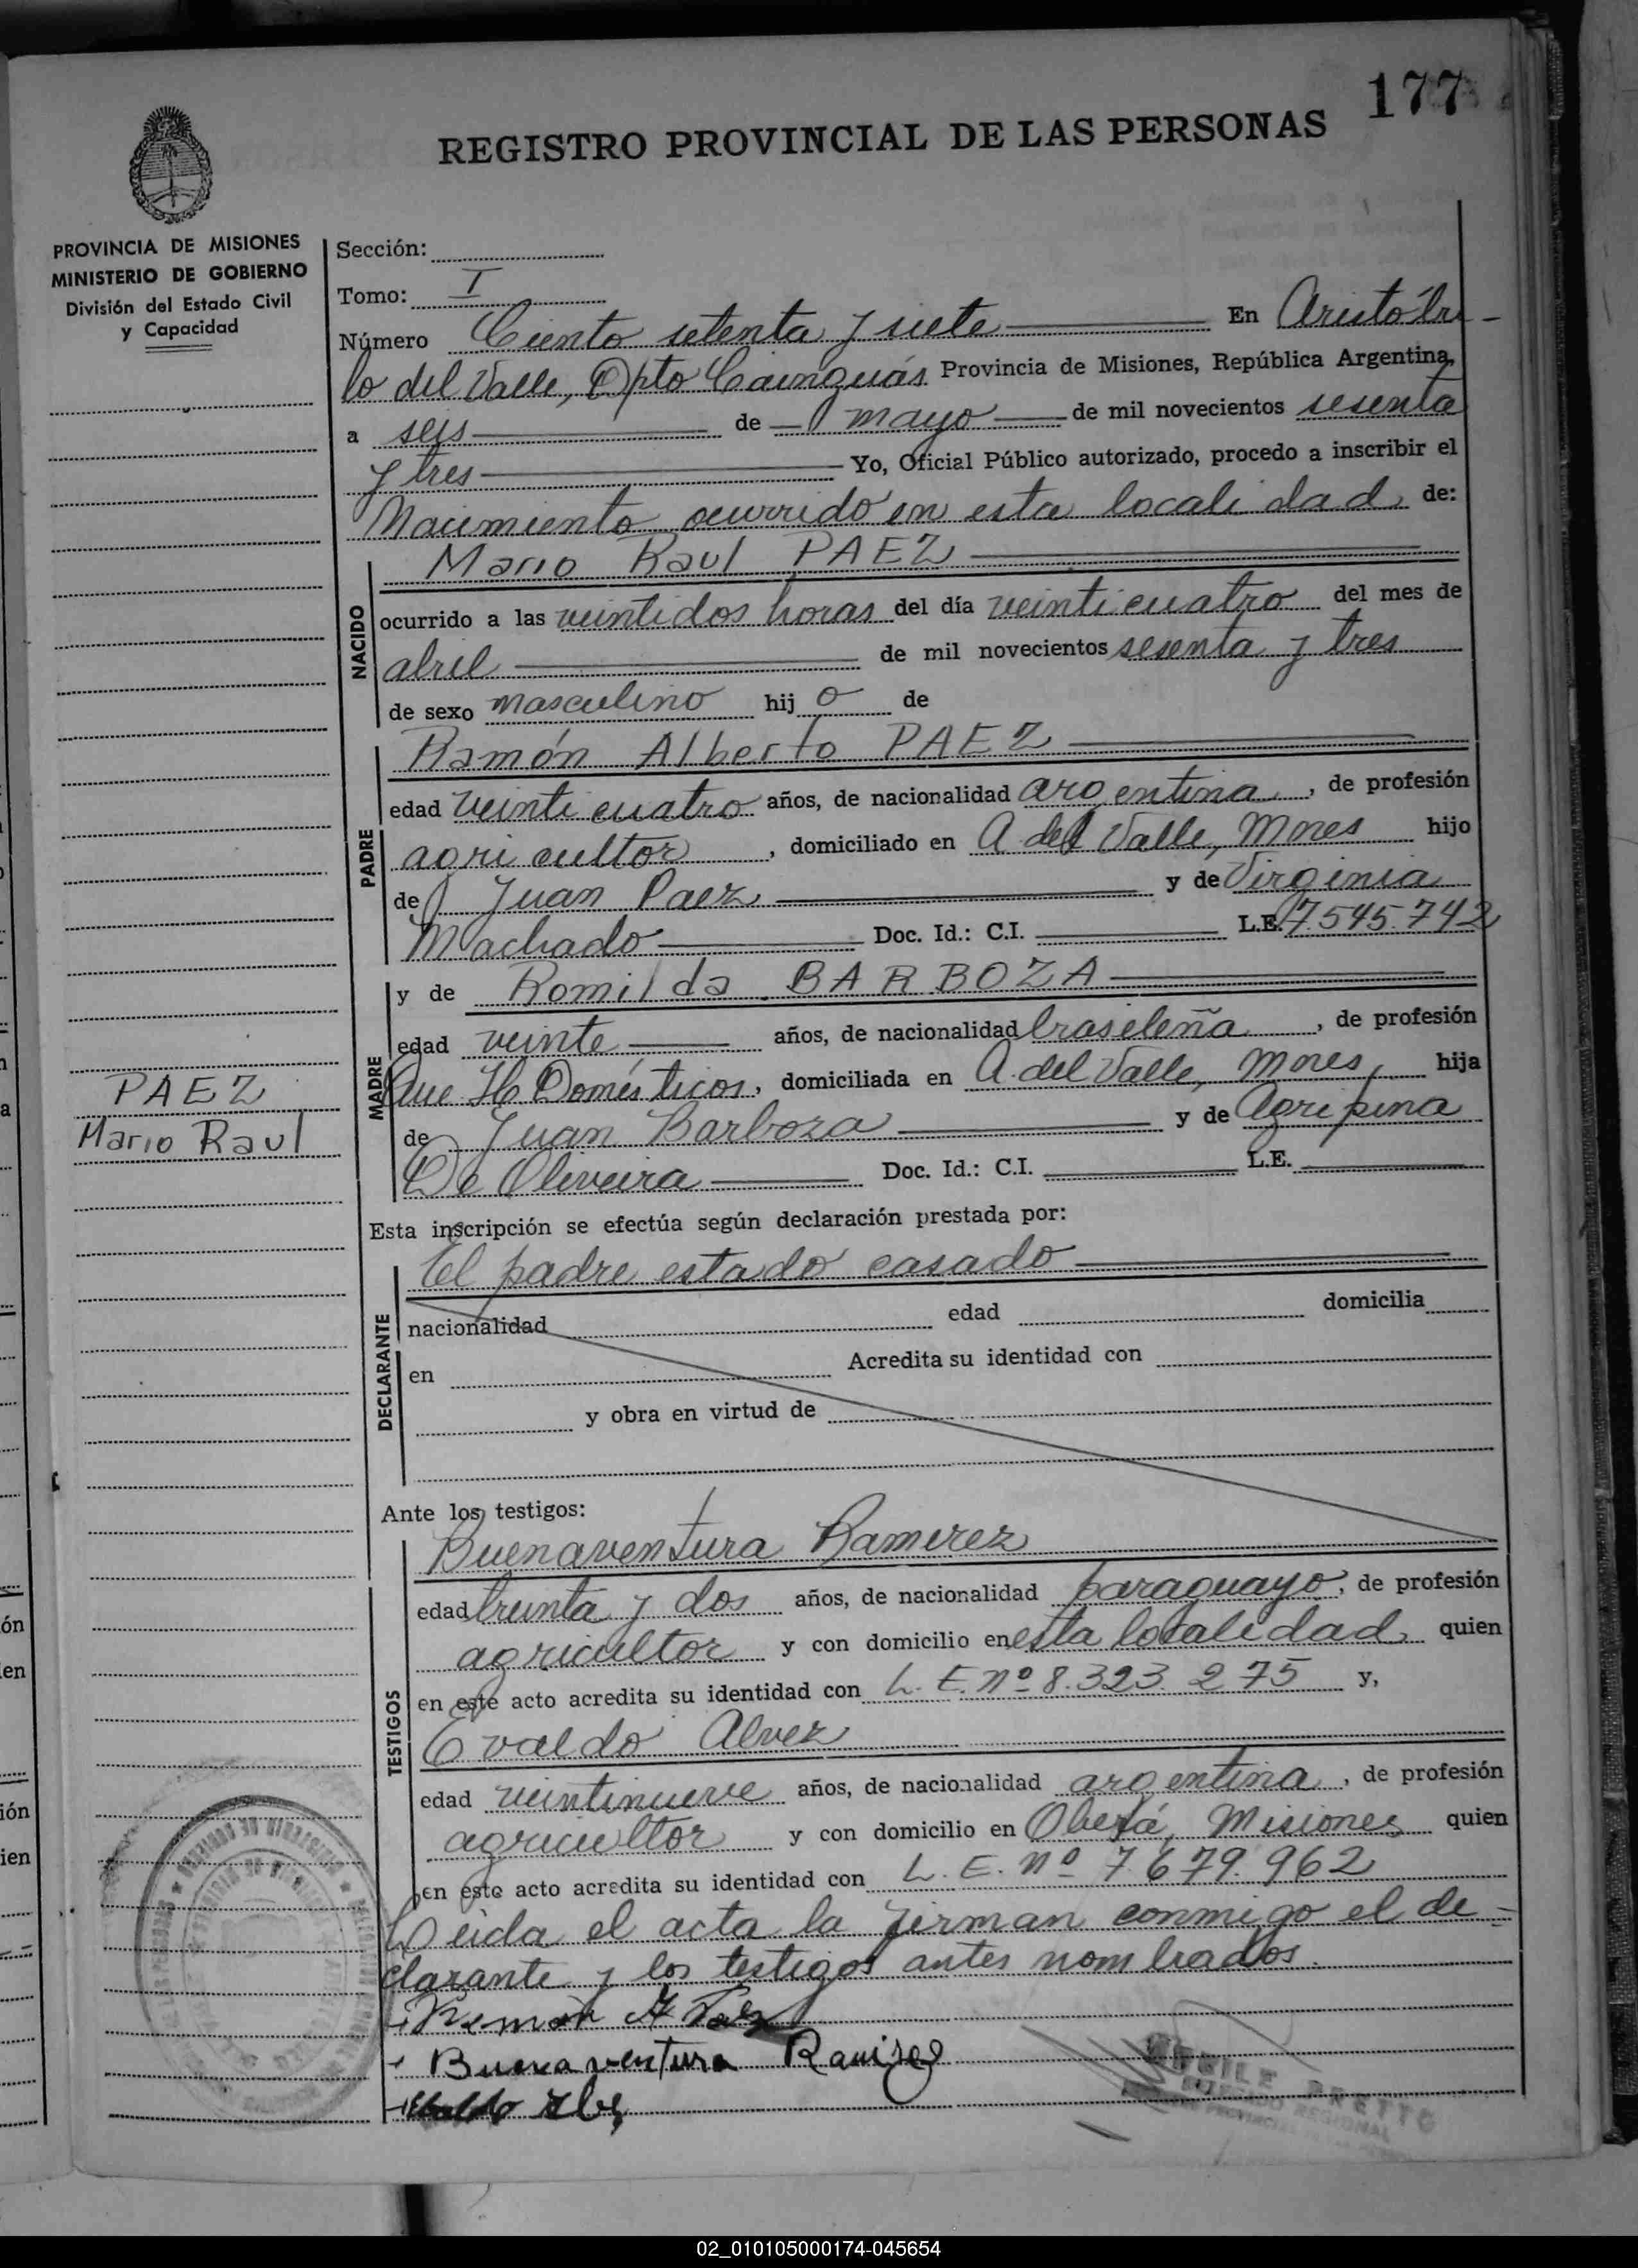 177
REGISTRO PROVINCIAL DE LAS PERSONAS
PROVINCIA DE MISIONES
MINISTERIO DE GOBIERNO
División del Estado Civil
y Capacidad
Sección:
Tomo: I
Número Ciento setenta y siete En Aristóbu-
lo del Valle, Dpto Cainguás Provincia de Misiones, República Argentina,
a seis de mayo de mil novecientos sesenta
y tres Yo, Oficial Público autorizado, procedo a inscribir el
Nacimiento ocurrido en esta localidad de:
NACIDO
Mario Raul PAEZ
ocurrido a las veintidos horas del día veinticuatro del mes de
abril de mil novecientos sesenta y tres
de sexo masculino hij o de
PADRE
Ramón Alberto PAEZ
edad veinticuatro años, de nacionalidad argentina, de profesión
agricultor, domiciliado en A del Valle, Mnes hijo
de Juan Paez y de Virginia
Machado Doc. Id.: C.I. L.E. 7.545.742
MADRE
y de Romilda BARBOZA
edad veinte años, de nacionalidad brasileña, de profesión
Que H. Domésticos, domiciliada en A. del Valle, Mnes, hija
de Juan Barboza y de Agripina
De Oliveira Doc. Id.: C.I. L.E.
PAEZ
Mario Raul
Esta inscripción se efectúa según declaración prestada por:
DECLARANTE
El padre estado casado
nacionalidad edad domicilia
en Acredita su identidad con
y obra en virtud de
Ante los testigos:
TESTIGOS
Buenaventura Ramirez
edad treinta y dos años, de nacionalidad paraguayo, de profesión
agricultor y con domicilio en esta localidad quien
en este acto acredita su identidad con L. E. Nº 8.323.275 y,
Evaldo Alvez
edad veintinueve años, de nacionalidad argentina, de profesión
agricultor y con domicilio en Oberá, Misiones quien
en este acto acredita su identidad con L. E. Nº 7.679.962
Leida el acta la firman conmigo el de-
clarante y los testigos antes nombrados.
Ramón A Paez
Buenaventura Ramirez
PRETTO
REGIONAL
02_010105000174-045654